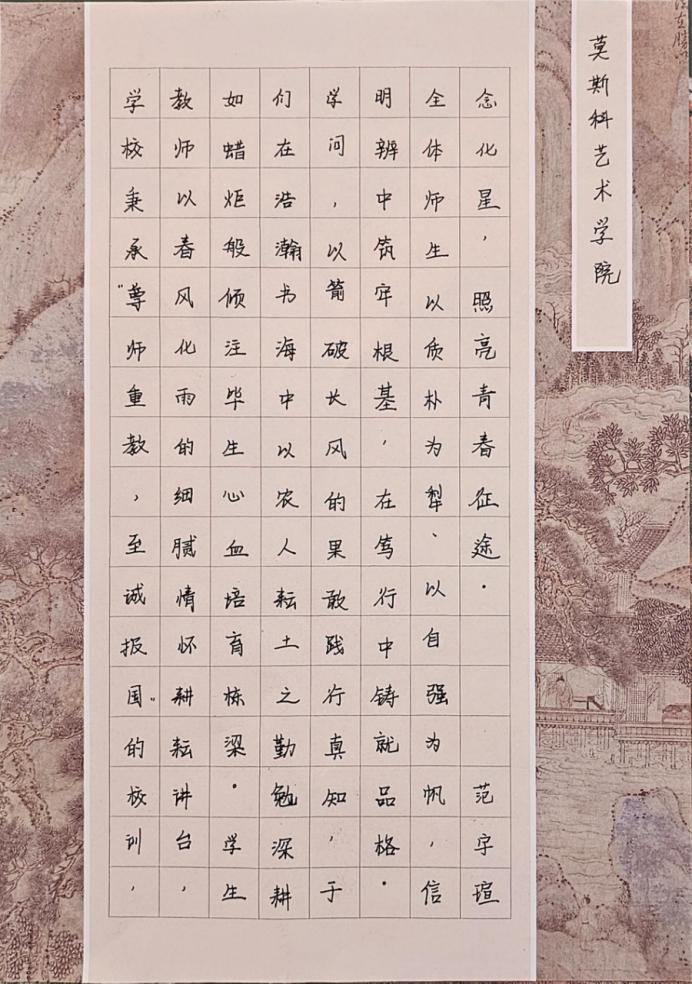 莫斯科艺术学院
学校秉承“尊师重教，至诚报国”的校训，
教师以春风化雨的细腻情怀耕耘讲台，
如蜡炬般倾注毕生心血培育栋梁。学生
们在浩瀚书海中以农人耘土之勤勉深耕
学问，以箭破长风的果敢践行真知，于
明辨中筑牢根基，在笃行中铸就品格。
全体师生以质朴为犁、以自强为帆，信
念化星，照亮青春征途。
范宇瑄